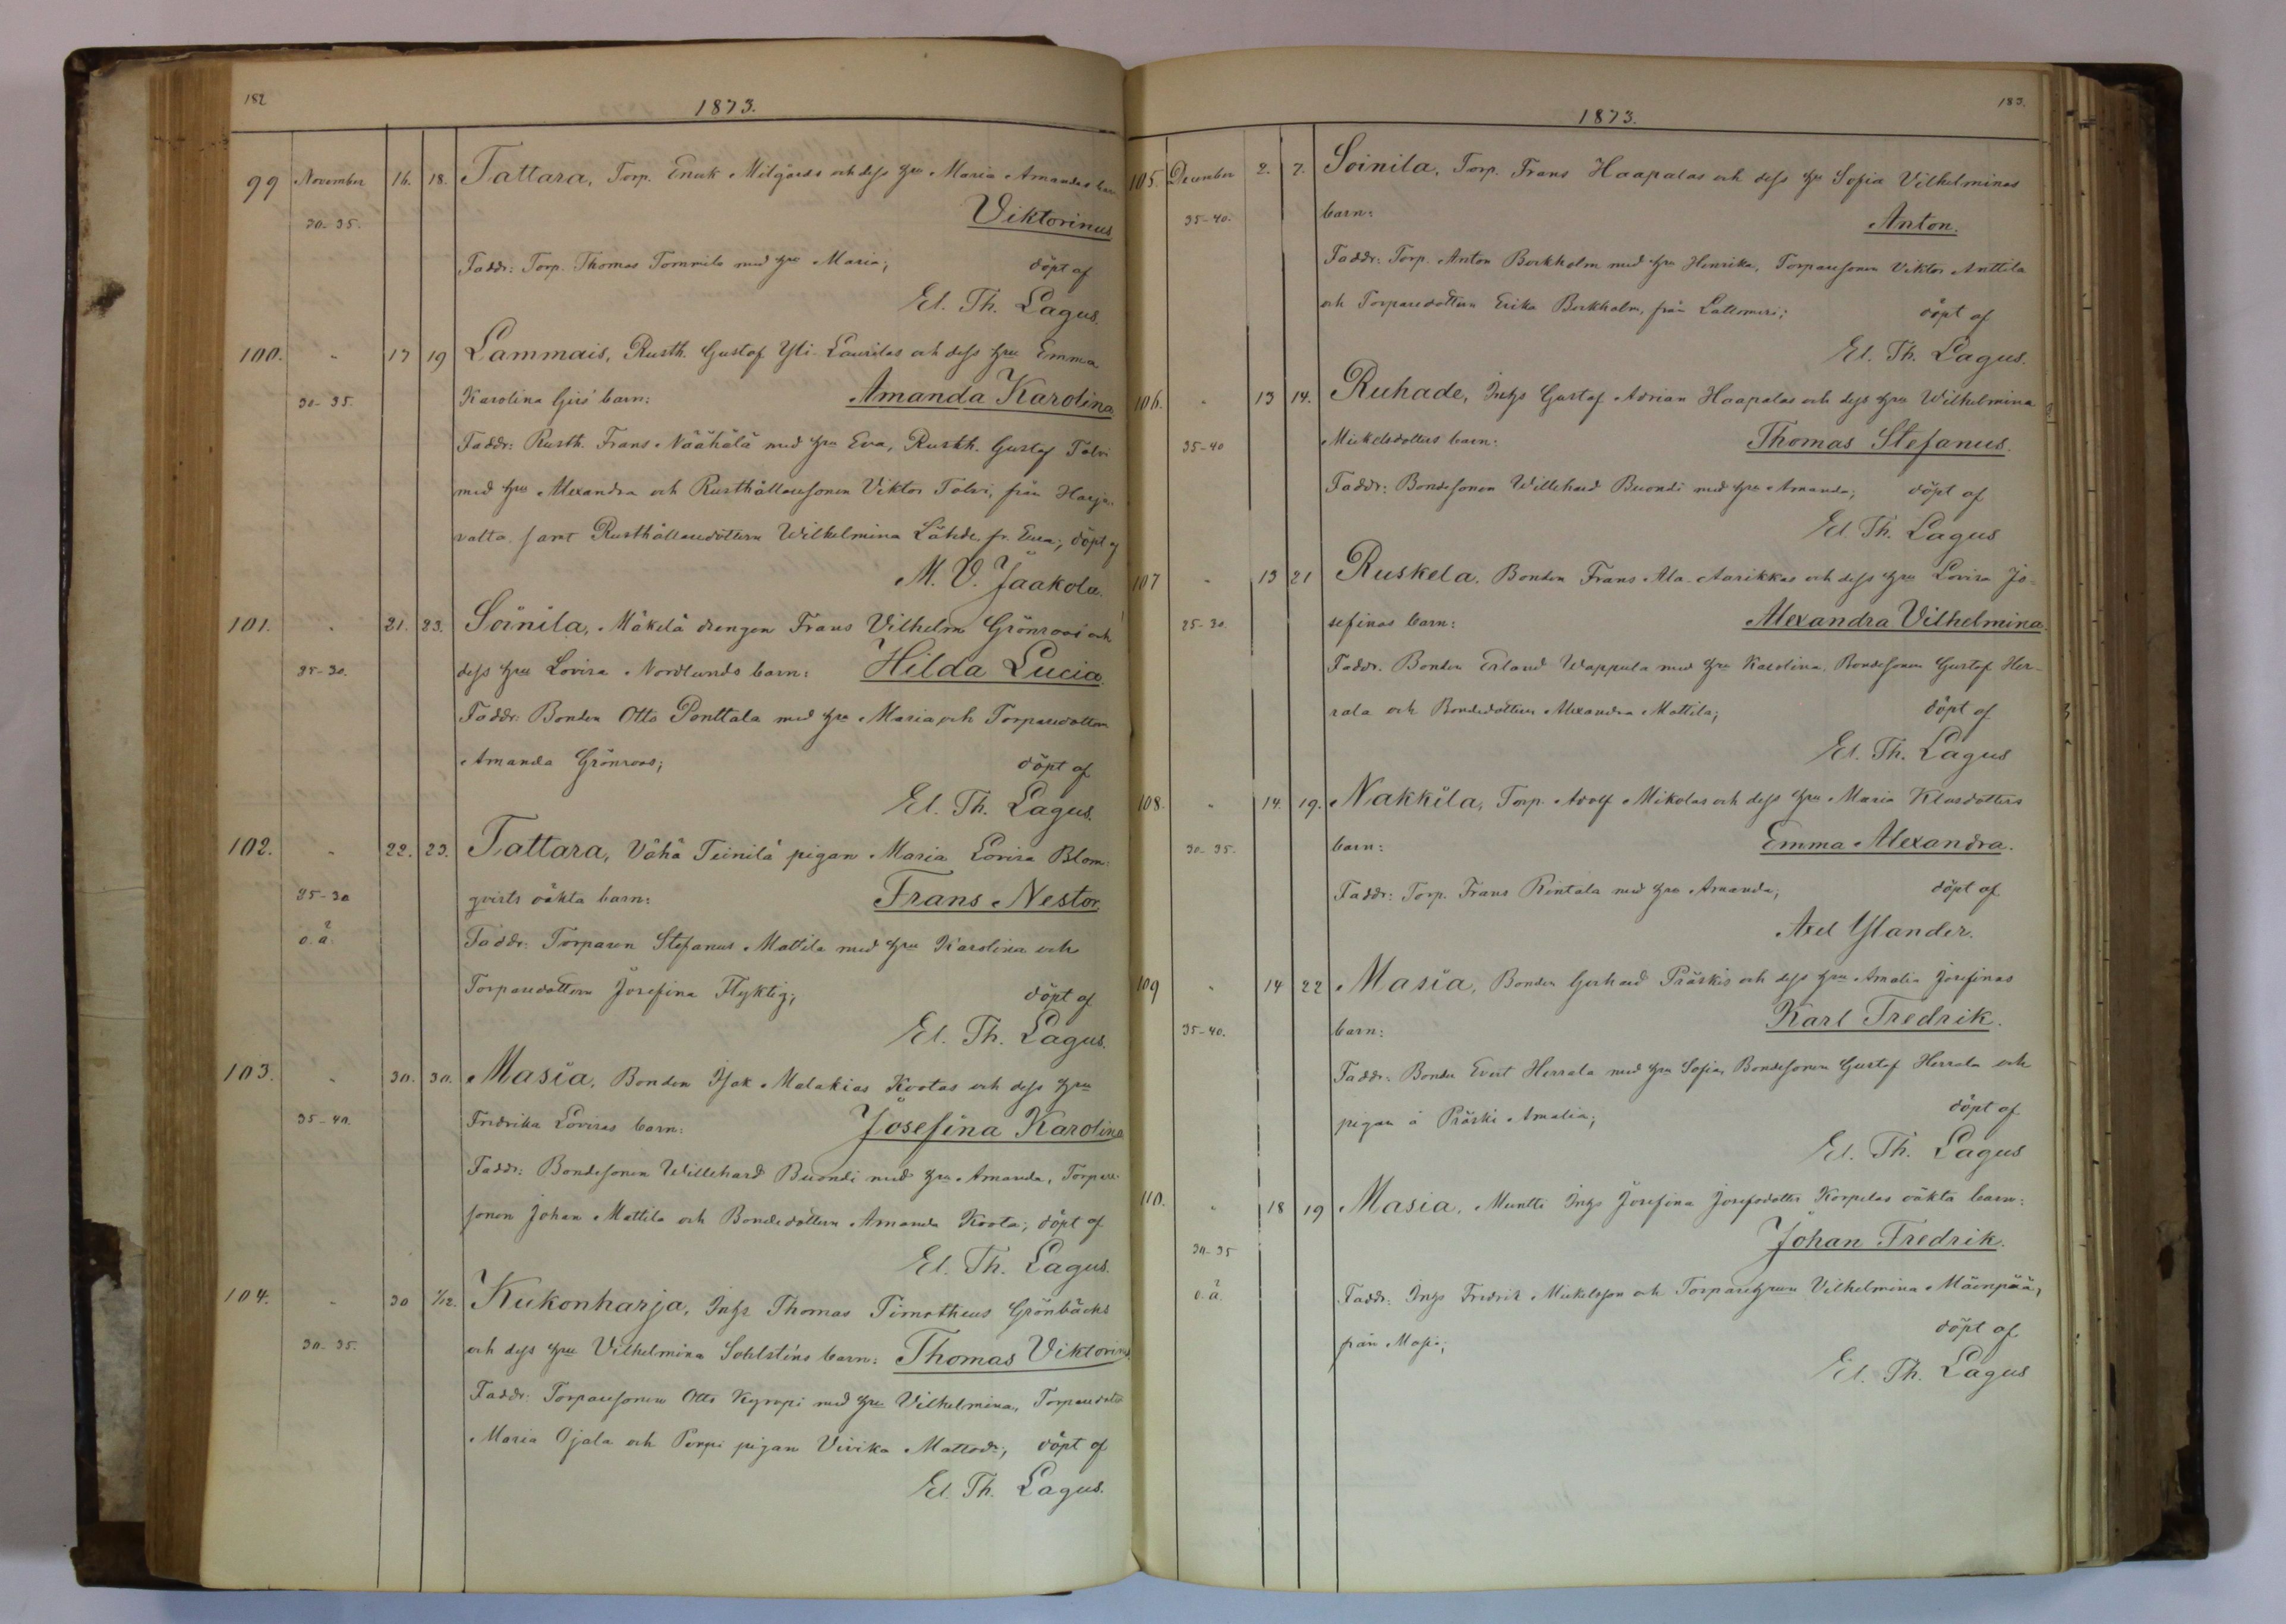 182
1873.
99 November 16. 18. Tattara, Torp. Enok Milgårds och dess hru Maria Amandas barn
30-35. Viktorinus
Faddr: Torp. Thomas Tommila med hru Maria; döpt af
El. Th. Lagus.
100. " 17 19 Lammais, Rusth. Gustaf Yli-Laurilas och dess hru Emma
30-35. Karolina barn: Amanda Karolina
Faddr: Rusth. Frans Näähälä med hru Eva, Rusth. Gustaf Tolvi
med hru Alexandra och Rusthållaresonen Viktor Tolvi, från Harja-
valta samt Rusthållaredottern Wilhelmina Lähde, fr. Eura; döpt af
M. V. Jaakola.
101. " 21. 23. Soinila, Mäkelä drengen Frans Vilhelm Grönroos och
25-30. dess hru Lovisa Nordlunds barn: Hilda Lucia.
Faddr: Bonden Otto Penttala med hru Maria och Torparedottern
Amanda Grönroos; döpt af
El. Th. Lagus.
102. " 22. 23. Tattara, Vähä Teinilä pigan Maria Lovisa Blom-
25-30 qvists oäkta barn: Frans Nestor.
o. ä. Faddr: Torparen Stefanus Mattila med hru Karolina och
Torparedottern Josefina Flyktig; döpt af
El. Th. Lagus.
103. " 30. 30. Masia, Bonden Isak Malakias Kootas och dess hru
35-40. Fredrika Lovisas barn: Josefina Karolina
Faddr: Bondesonen Willehard Buondi med hru Amanda, Torpare-
sonen Johan Mattila och Bondedottern Amanda Koota; döpt af
El. Th. Lagus.
104. " 30 1/12. Kukonharja, Inhs Thomas Timotheus Grönbäcks
30-35. och dess hru Vilhelmina Sohlsténs barn: Thomas Viktorinus.
Faddr: Torparesonen Otto Kyropi med hru Vilhelmina, Torparedotter
Maria Ojala och pigan Vivika Mattsdr; döpt af
El. Th. Lagus.
183.
1873.
105. December 2. 7. Soinila, Torp. Frans Haapalas och dess hru Sofia Vilhelminas
35-40. barn: Anton.
Faddr: Torp. Anton Borkholm med hru Henrika, Torparesonen Viktor Anttila
och Torparedottern Erika Borkholm, från Lattomeri; döpt af
El. Th. Lagus.
106. " 13 14. Ruhade, Inhys Gustaf Adrian Haapalas och dess hru Wilhelmina
35-40 Mickelsdotters barn: Thomas Stefanus.
Faddr: Bondesonen Willehard Buondi med hru Amanda; döpt af
El. Th. Lagus
107 " 13 21 Ruskela, Bonden Frans Ala-Aarikkas och dess hru Lovisa Jo-
25-30. sefinas barn: Alexandra Vilhelmina.
Faddr. Bonden Erland Wappula med hru Karolina, Bondesonen Gustaf Her-
rala och Bondedottern Alexandra Mattila; döpt af
El. Th. Lagus
108. " 14. 19. Nakkila, Torp. Adolf Mikolas och dess hru Maria Klasdotters
30-35. barn: Emma Alexandra.
Faddr: Torp. Frans Rintala med hru Amanda; döpt af
Axel Ylander.
109 " 14 22 Masia, Bonden Gerhard Präskis och dess hru Amalia Josefinas
35-40. barn: Karl Fredrik.
Faddr: Bonden Evert Herrala med hru Sofia, Bondesonen Gustaf Herrala och
pigan å Präski Amalia; döpt af
El. Th. Lagus
110. " 18 19 Masia, Muntti Inhs Josefina Josefsdotter Korpelas oäkta barn:
30-35 Johan Fredrik.
o. ä. Faddr: Inhs Fredrik Mickelsson och Torparehrun Vilhelmina Mäenpää,
från Masia; döpt af
El. Th. Lagus